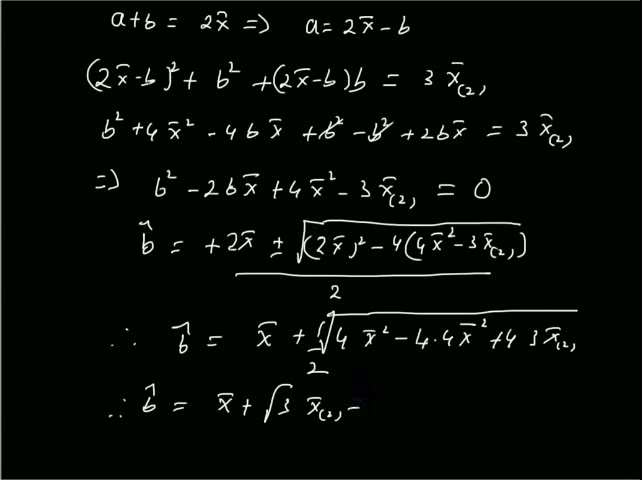 a+b = 2x̄ => a = 2x̄ - b
(2x̄-b)² + b² + (2x̄-b)b = 3 x̄₍₂₎
b² + 4x̄² - 4bx̄ + b² - b² + 2bx̄ = 3 x̄₍₂₎
=> b² - 2bx̄ + 4x̄² - 3x̄₍₂₎ = 0
b̂ = +2x̄ ± √((2x̄)² - 4(4x̄² - 3x̄₍₂₎))
2
∴ b̂ = x̄ + ½√(4 x̄² - 4.4x̄² + 4 3 x̄₍₂₎
∴ b̂ = x̄ + √3 x̄₍₂₎ -